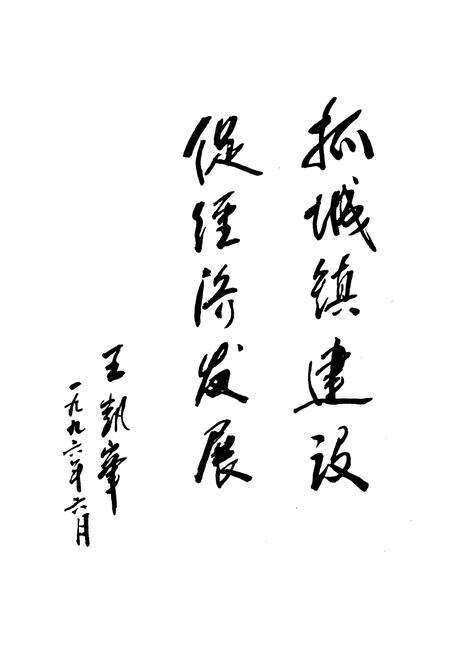 抓城镇建设
促经济发展
王凯峯
一九九六年六月